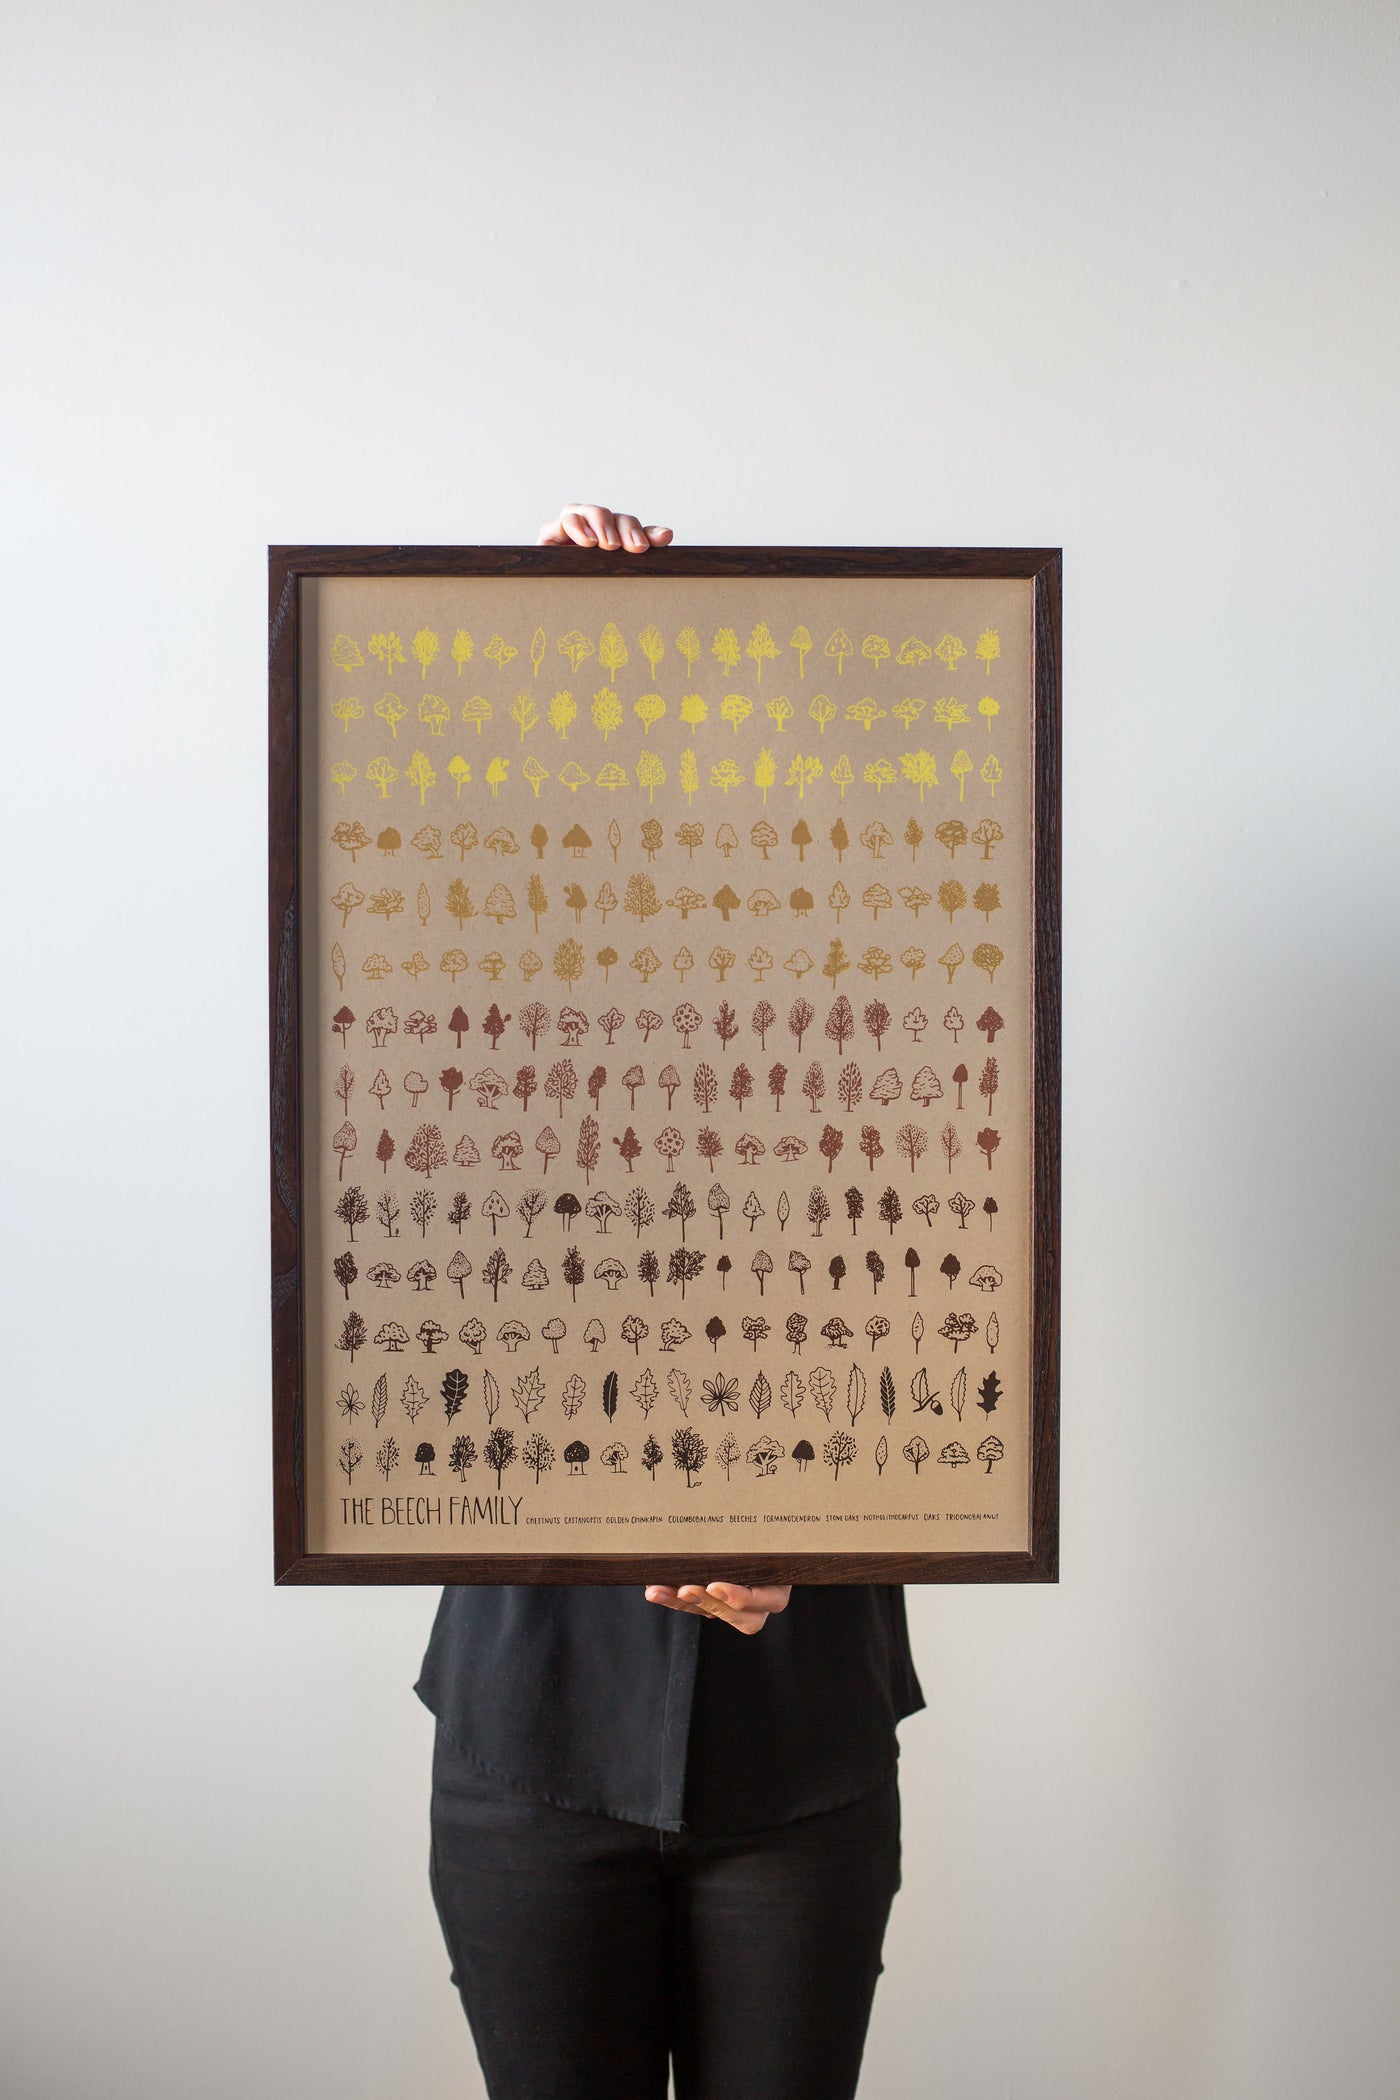 THE BEECH FAMILY CHESTNUTS CASTANOPSIS GOLDEN CHINKAPIN COLOMBOBALANUS BEECHES FORMANODENDRON STONE OAKS NOTHOLITHOCARPUS OAKS TRIGONOBALANUS